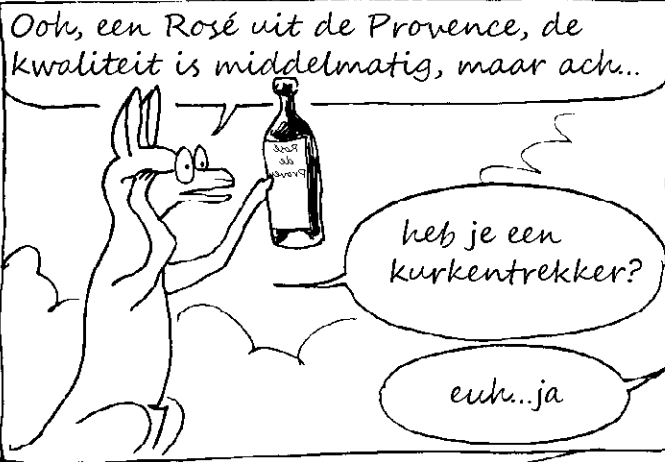 Ooh, een Rosé uit de Provence, de
kwaliteit is middelmatig, maar ach...
Rosé
de
Proven
heb je een
kurkentrekker?
euh...ja